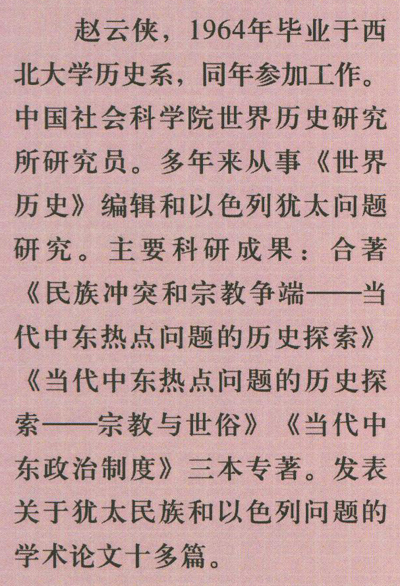 赵云侠，1964年毕业于西
北大学历史系，同年参加工作。
中国社会科学院世界历史研究
所研究员。多年来从事《世界
历史》编辑和以色列犹太问题
研究。主要科研成果：合著
《民族冲突和宗教争端——当
代中东热点问题的历史探索》
《当代中东热点问题的历史探
索——宗教与世俗》《当代中
东政治制度》三本专著。发表
关于犹太民族和以色列问题的
学术论文十多篇。